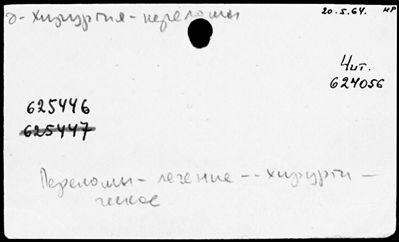 д-хирургия-переломы
20.5.64. МР
Чит.
624056
625446
625447
Переломы-лечение--хирурги-
ческое